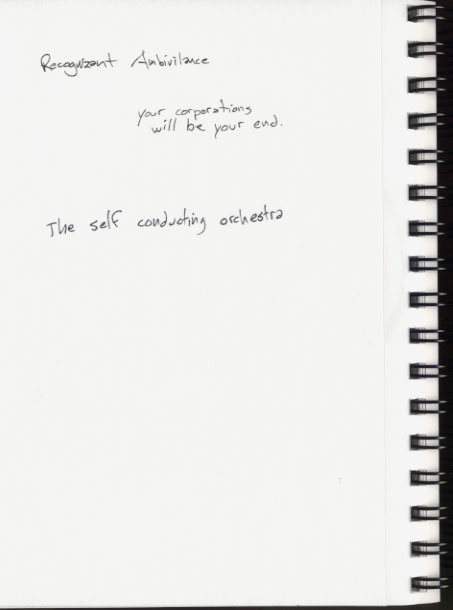 Recognizant Ambivilance
your corporations
will be your end.
The self conducting orchestra